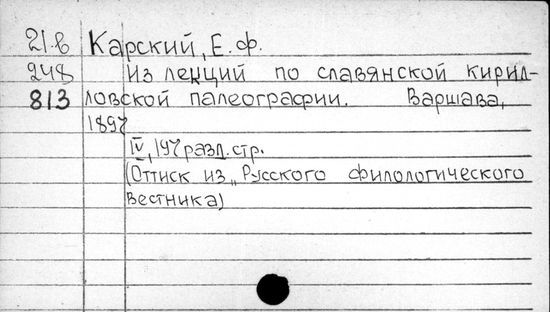 21.в Карский, Е.Ф.
248 Из лекций по славянской кирил-
813 ловской палеографии. Варшава,
1897
IV, 197 разд. стр.
(Оттиск из „Русского филологического
вестника)